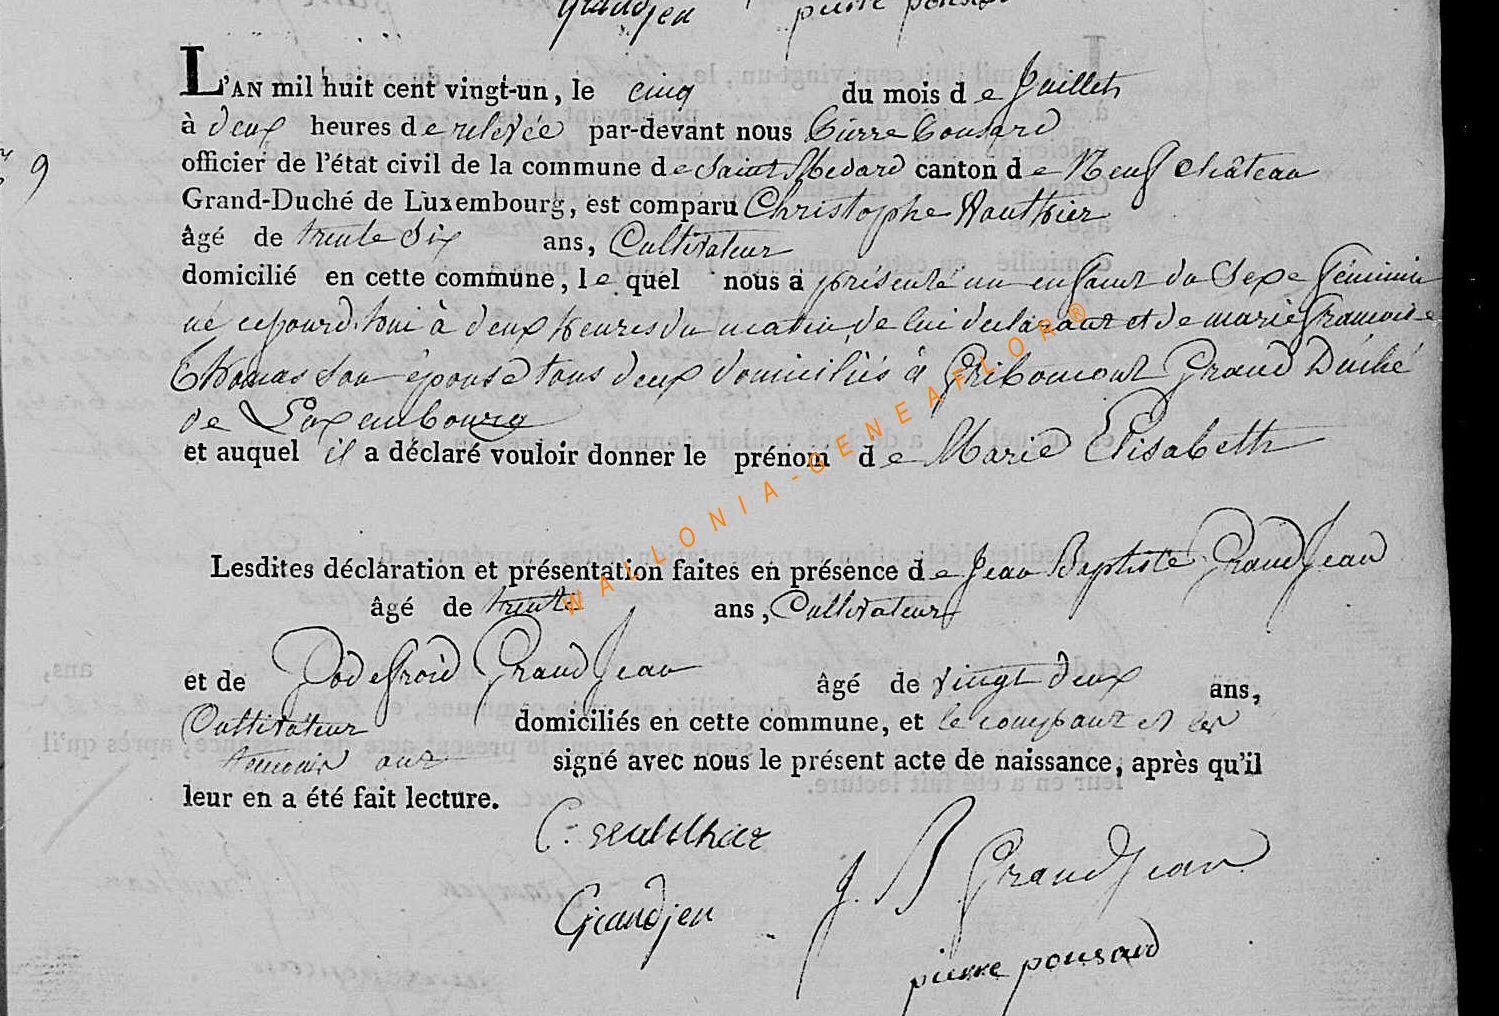 Grandjen pierre ponsard
L'AN mil huit cent vingt-un, le cinq du mois de Juillet
à deux heures de relevée par-devant nous Pierre Ponsard
officier de l'état civil de la commune de Saint Medard canton de Neufchâteau
Grand-Duché de Luxembourg, est comparu Christophe Wauthier
âgé de trente Six ans, Cultivateur
domicilié en cette commune, lequel nous a présenté un enfant du Sexe féminin
né cejourd'hui à deux heures du matin de lui declarant et de marie francoise
Thomas Son épouse tous deux domiciliés à Gribomont Grand Duché
de Luxembourg
et auquel il a déclaré vouloir donner le prénom de Marie Elisabeth
WALLONIA-GENEAFLOR®
Lesdites déclaration et présentation faites en présence de Jean Baptiste GrandJean
âgé de trente ans, Cultivateur
et de Godefroid GrandJean âgé de vingt deux ans,
Cultivateur domiciliés en cette commune, et le comparant et les
temoins ont signé avec nous le présent acte de naissance, après qu'il
leur en a été fait lecture.
9
J. B GrandJean
Grandjen
pierre ponsard